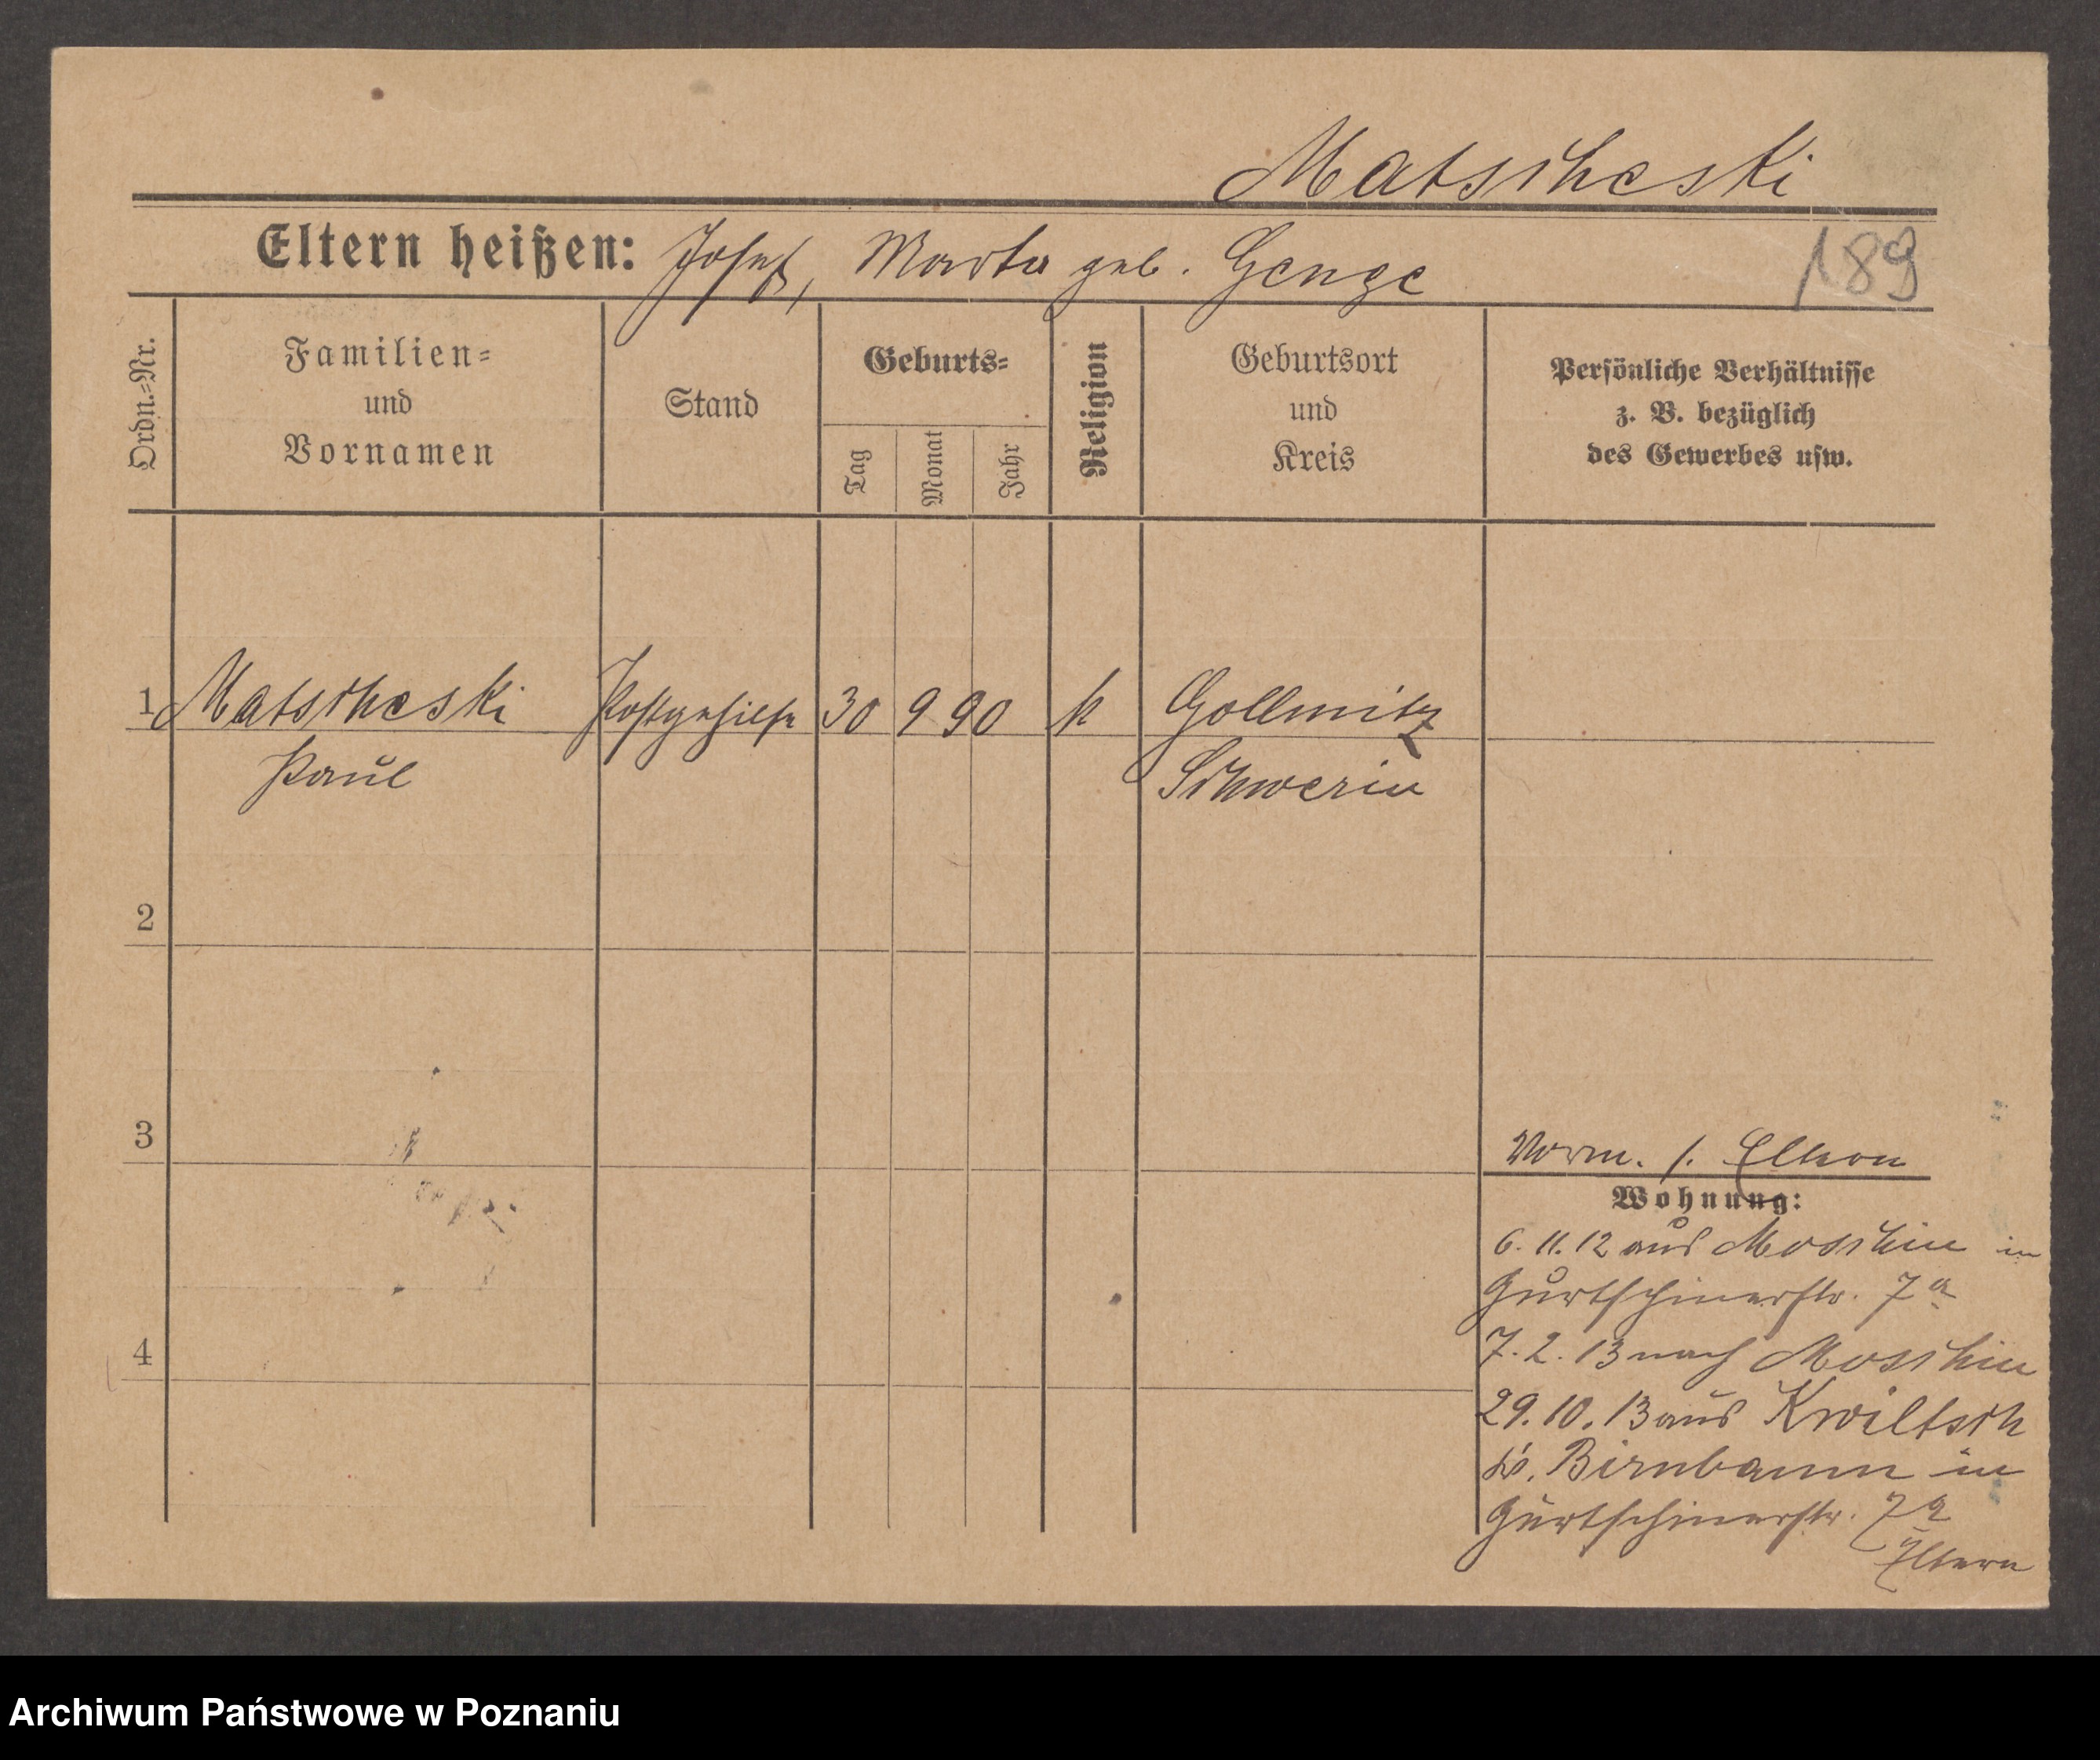 Matscheski
Eltern heißen: Josef, Marta geb. Genge
189
Ordn.-Nr.
Familien-
und
Vornamen
Stand
Geburts-
Tag
Monat
Jahr
Religion
Geburtsort
und
Kreis
Persönliche Verhältnisse
z. B. bezüglich
des Gewerbes usw.
1 Matscheski Postgehilfe 30 9 90 k Gollmitz
Paul Schwerin
2
3
Vorm. s. Eltern
Wohnung:
6. 11. 12 aus Moschin in
Gurtschinerstr. 7a
4
7. 2. 13 nach Moschin
29. 10. 13 aus Kwiltsch
Kr. Birnbaum in
Gurtschinerstr. 7a
Eltern
Archiwum Państwowe w Poznaniu